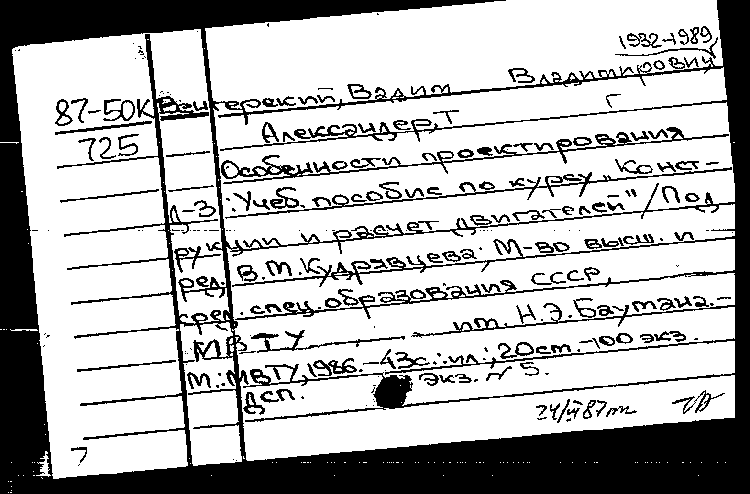 1932-1989
87-50К Венгерский, Вадим Владимирович
725 Александер, Т
Особенности проектирования
Д-3: Учеб. пособие по курсу „Конст-
рукции и расчет двигателей"/Под
ред. В.М. Кудрявцева; М-во высш. и
сред. спец. образования СССР,
МВТУ им. Н.Э. Баумана.-
М.: МВТУ, 1986. -43с.: ил.; 20см. -100 экз.
ДСП. экз. № 5.
7